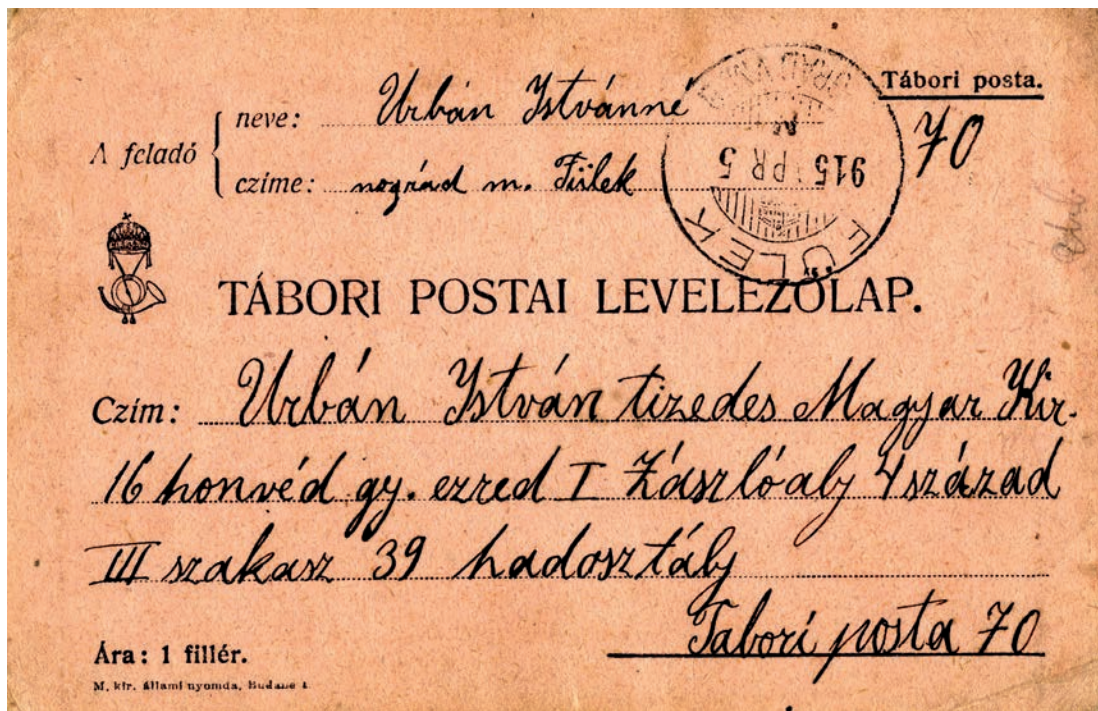 Tábori posta.
70
A feladó
neve: Urbán Istvánné
czíme: nográd m. Fülek
915 PR 5
FÜLEK
TÁBORI POSTAI LEVELEZŐLAP.
Czím: Urbán István tizedes Magyar Kir.
16 honvéd gy. ezred I Zászlóalj 4 század
III szakasz 39 hadosztály
Tabori posta 70
Ára: 1 fillér.
M. kir. állami nyomda, Budape t.